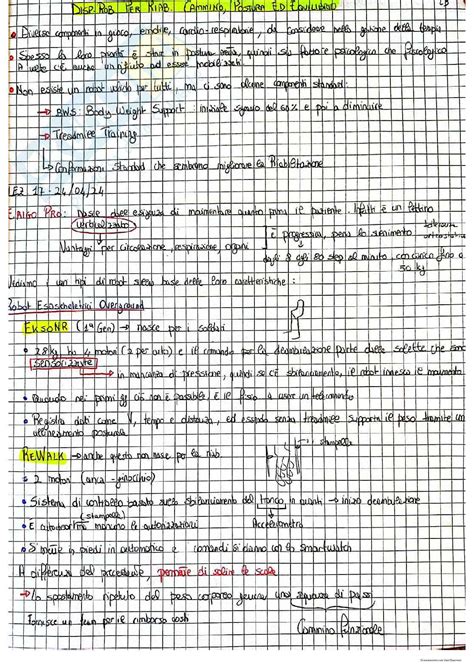 DISP. ROB. PER RIAB. CAMMINO, POSTURA ED EQUILIBRIO
Diverse componenti in gioco, emotive, cardio-respiratorie, da considerare nella gestione della terapia
Spesso la loro priorità è stare in postura eretta, quindi sia fattore psicologico che fisiologico
A volte c'è anche un rifiuto ad essere mobilizzati
Non esiste un robot valido per tutti, ma ci sono alcune componenti standard:
→ BWS: Body Weight Support: iniziale sgravio del 60% e poi a diminuire
→ Treadmill Training
↳ Configurazioni standard che sembrano migliorare la Riabilitazione
LEZ 17 - 24/04/24
ERIGO PRO: Nasce dall'esigenza di movimentare quanto prima il paziente. Infatti è un lettino
verticalizzato
è progressiva, pensa lo svenimento
Vantaggi per circolazione, respirazione, organi
agli 80 step al minuto, con carico fino a
50 kg
Vediamo i tipi di robot sulla base delle loro caratteristiche:
Robot Esoscheletrici Overground
EKSONR (1ª Gen) → nasce per i soldati
28kg, ha 4 motori (2 per arto) e il comando per la deambulazione parte dalle solette che sono
sensorizzate
→ in mancanza di pressione, quindi se c'è sbilanciamento, il robot innesca il movimento
Quando nei primi gg ciò non è possibile, è il fisio a usare un telecomando
Registra dati come V, tempo e distanza, ed essendo senza treadmill supporta il peso tramite un
allineamento posturale
REWALK → anche questo non nasce per la riab
stampelle
2 motori (anca - ginocchio)
Sistema di controllo basato sullo sbilanciamento del tronco in avanti → inizio deambulazione
(stampelle)
Accelerometro
E automatismi mancano le autorizzazioni
Si mette in piedi in automatico e comandi si danno con lo smartwatch
A differenza del precedente, permette di salire le scale
→ Lo spostamento ripetuto del peso corporeo genera una sequenza di passi
Fornisce un team per il rimborso costi
Cammino Funzionale